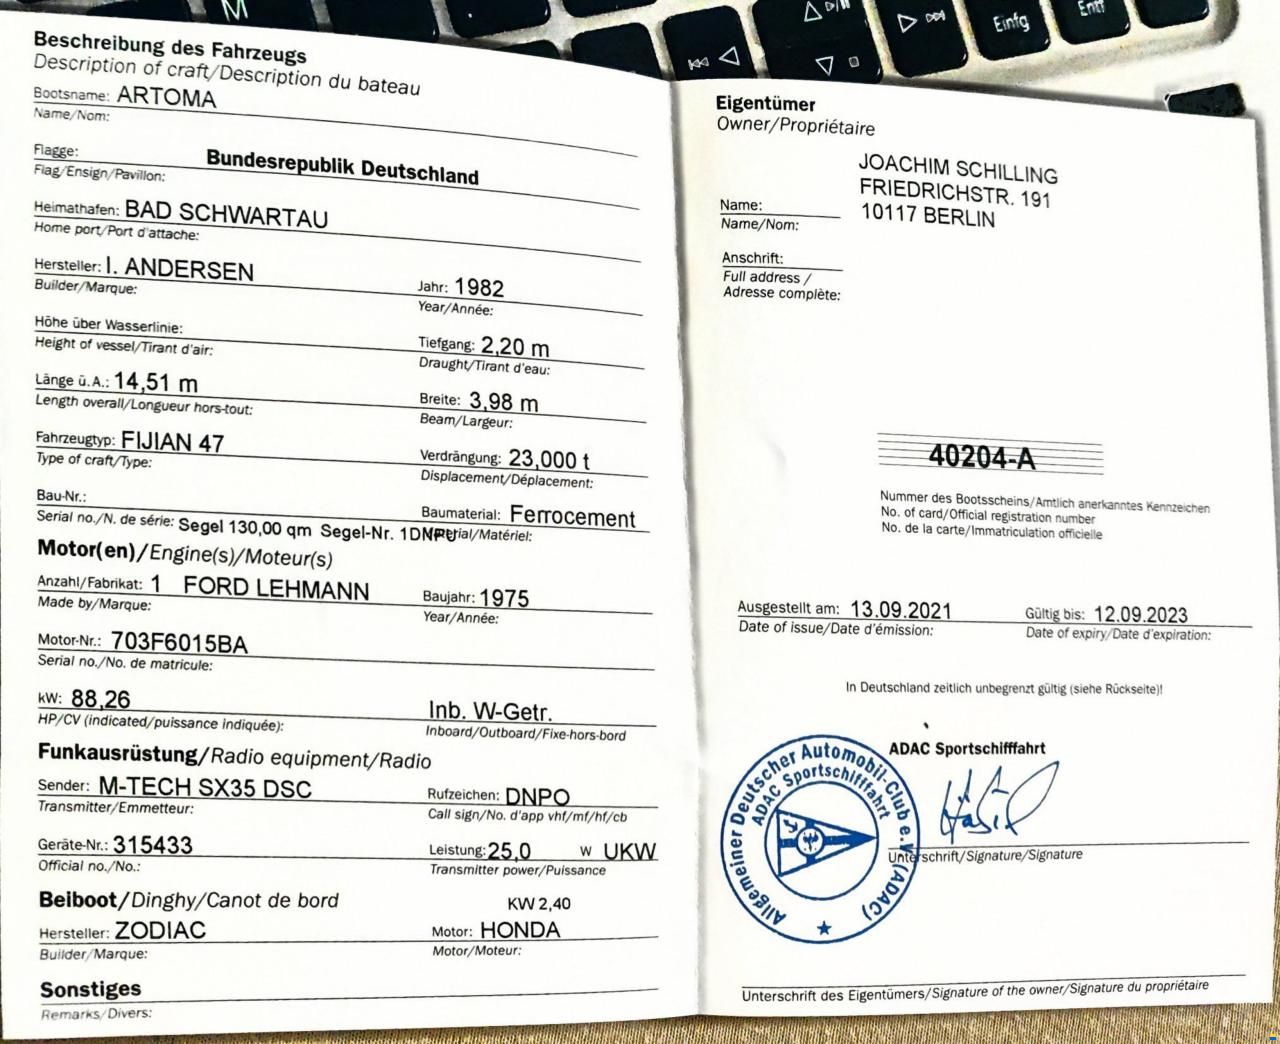 M
Einfg
Entf
Beschreibung des Fahrzeugs
Description of craft/Description du bateau
Bootsname: ARTOMA
Name/Nom:
Flagge: Bundesrepublik Deutschland
Flag/Ensign/Pavillon:
Heimathafen: BAD SCHWARTAU
Home port/Port d'attache:
Hersteller: I. ANDERSEN Jahr: 1982
Builder/Marque: Year/Année:
Höhe über Wasserlinie: Tiefgang: 2,20 m
Height of vessel/Tirant d'air: Draught/Tirant d'eau:
Länge ü.A.: 14,51 m Breite: 3,98 m
Length overall/Longueur hors-tout: Beam/Largeur:
Fahrzeugtyp: FIJIAN 47 Verdrängung: 23,000 t
Type of craft/Type: Displacement/Déplacement:
Bau-Nr.: Baumaterial: Ferrocement
Serial no./N. de série: Segel 130,00 qm Segel-Nr. /Matériel:
Motor(en)/Engine(s)/Moteur(s)
Anzahl/Fabrikat: 1 FORD LEHMANN Baujahr: 1975
Made by/Marque: Year/Année:
Motor-Nr.: 703F6015BA
Serial no./No. de matricule:
kW: 88,26 Inb. W-Getr.
HP/CV (indicated/puissance indiquée): Inboard/Outboard/Fixe-hors-bord
Funkausrüstung/Radio equipment/Radio
Sender: M-TECH SX35 DSC Rufzeichen: DNPO
Transmitter/Emmetteur: Call sign/No. d'app vhf/mf/hf/cb
Geräte-Nr.: 315433 Leistung: 25,0 W UKW
Official no./No.: Transmitter power/Puissance
Beiboot/Dinghy/Canot de bord KW 2,40
Hersteller: ZODIAC Motor: HONDA
Builder/Marque: Motor/Moteur:
Sonstiges
Remarks/Divers:
Eigentümer
Owner/Propriétaire
JOACHIM SCHILLING
FRIEDRICHSTR. 191
Name: 10117 BERLIN
Name/Nom:
Anschrift:
Full address /
Adresse complète:
40204-A
Nummer des Bootsscheins/Amtlich anerkanntes Kennzeichen
No. of card/Official registration number
No. de la carte/Immatriculation officielle
Ausgestellt am: 13.09.2021 Gültig bis: 12.09.2023
Date of issue/Date d'émission: Date of expiry/Date d'expiration:
In Deutschland zeitlich unbegrenzt gültig (siehe Rückseite)!
ADAC Sportschifffahrt
Allgemeiner Deutscher Automobil-Club e.V. (ADAC)
ADAC Sportschifffahrt
Unterschrift/Signature/Signature
Unterschrift des Eigentümers/Signature of the owner/Signature du propriétaire